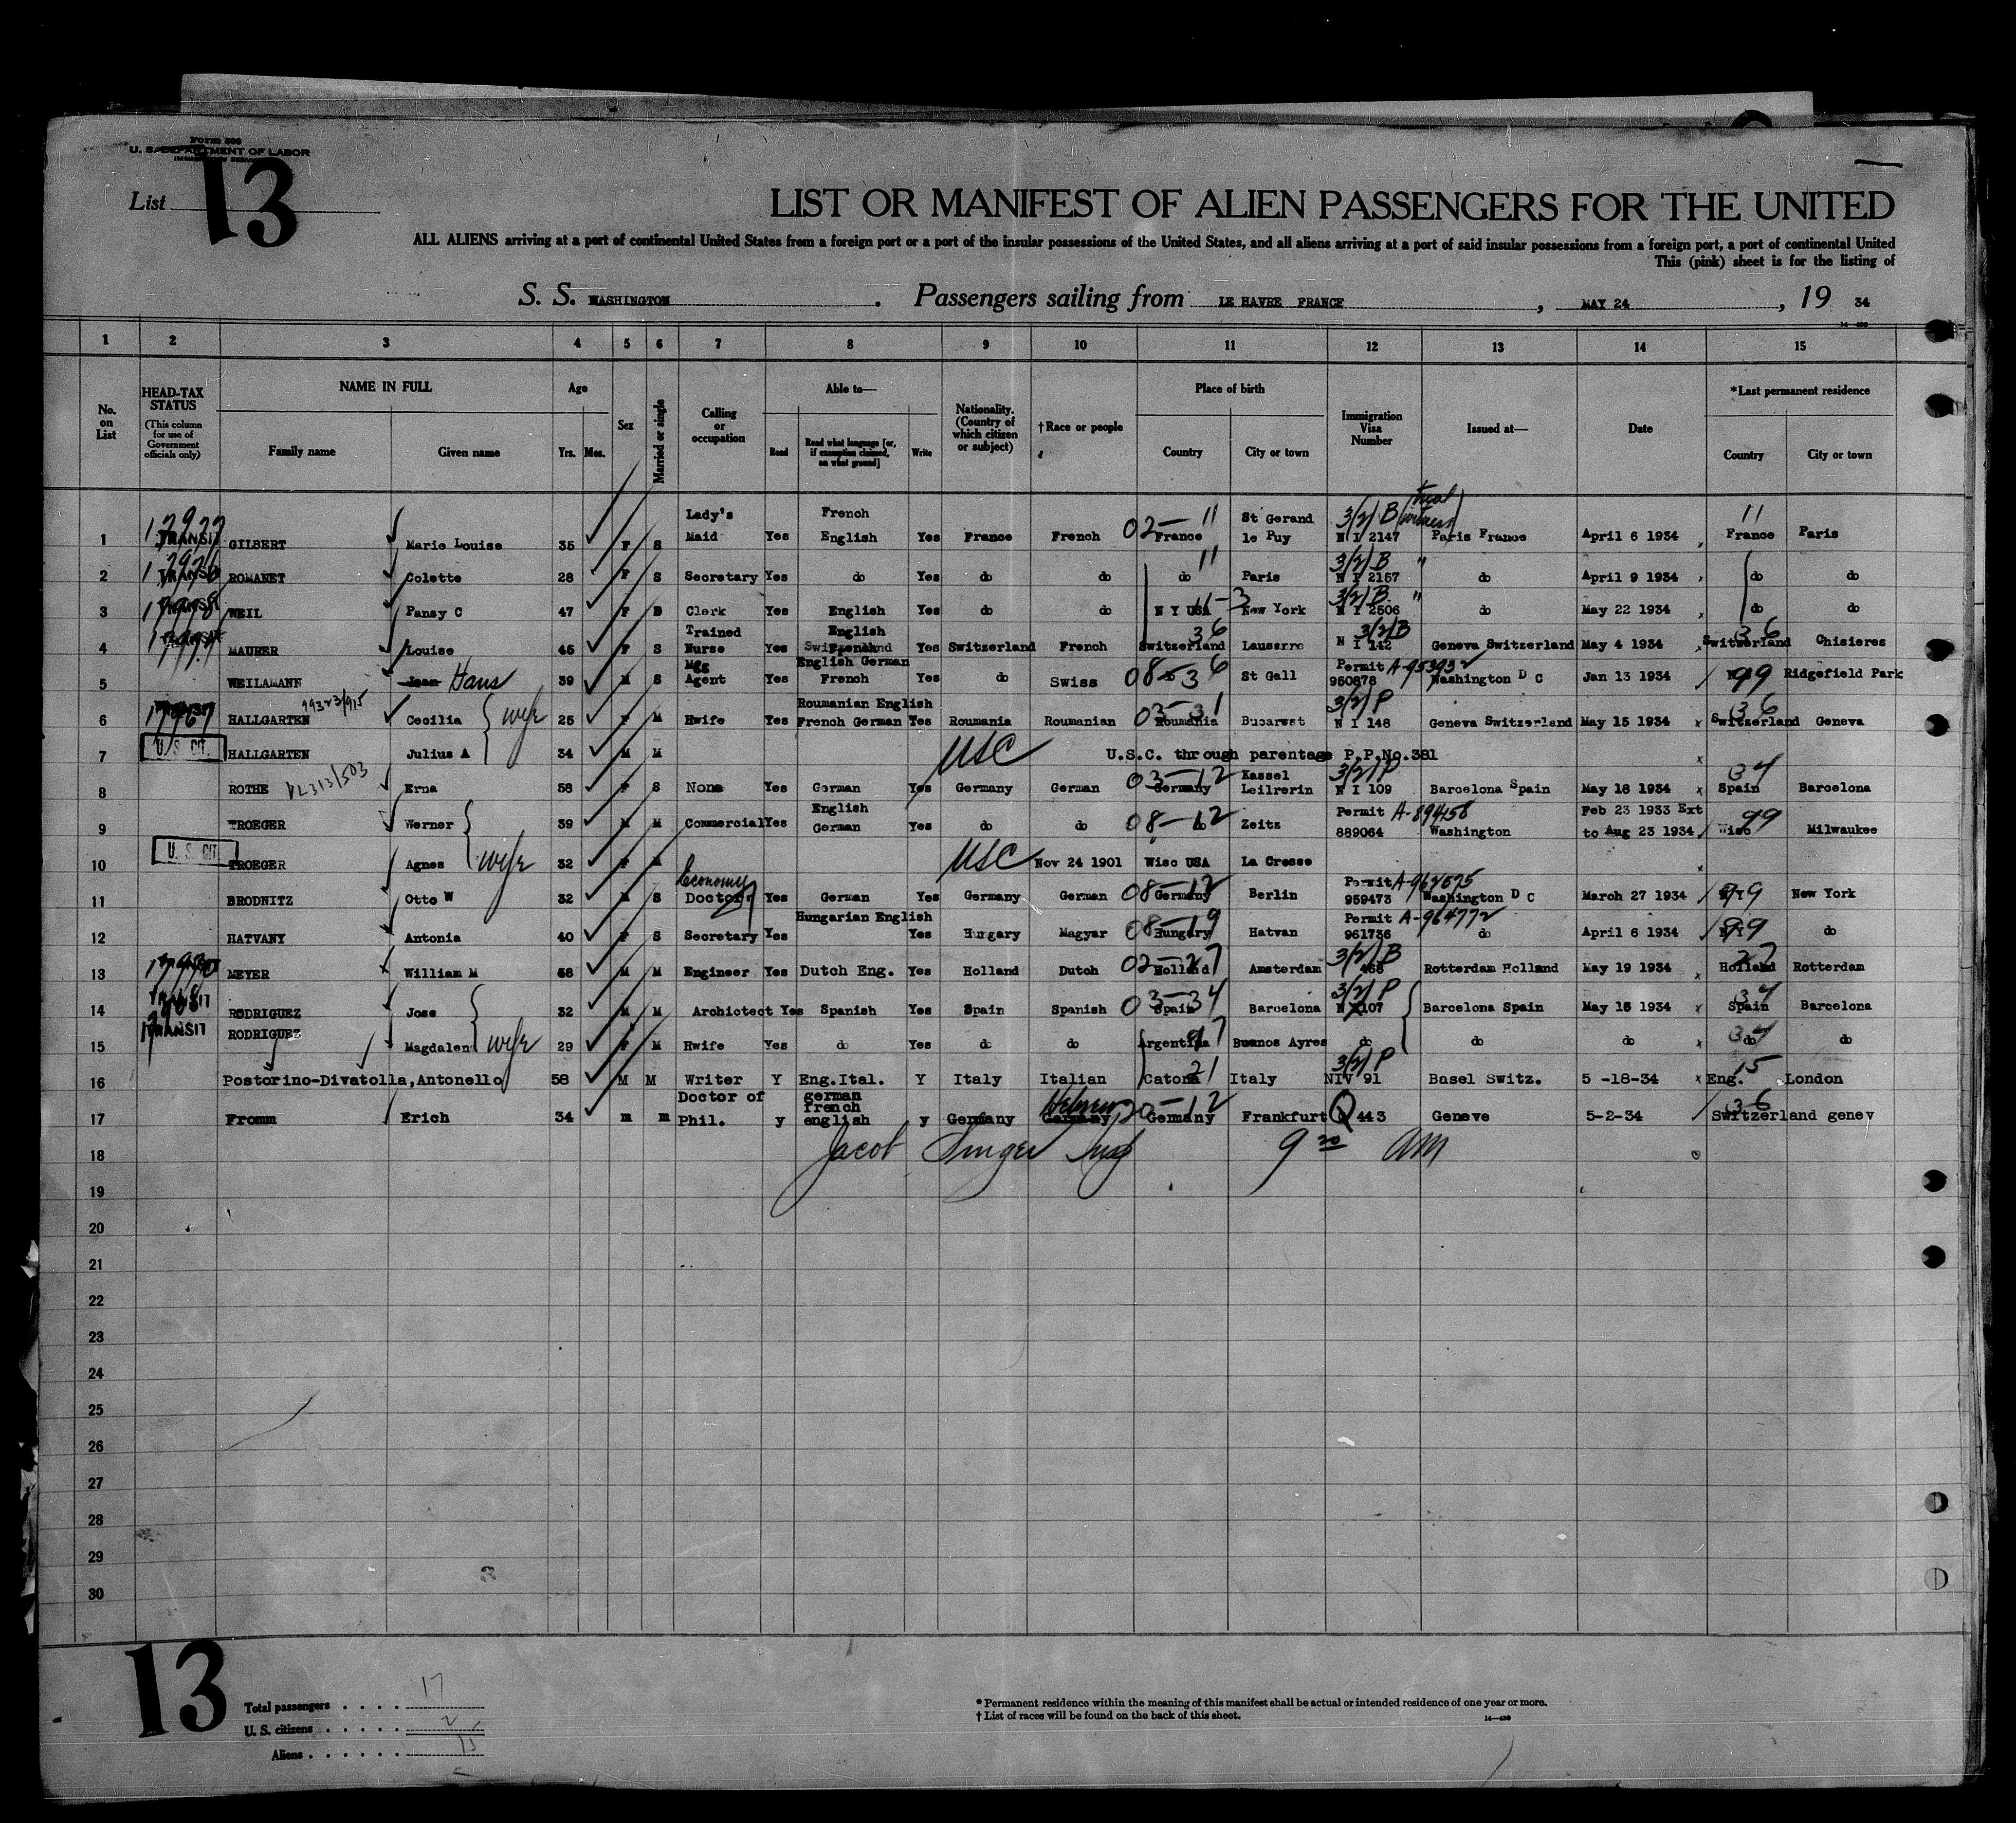 Form 500
U. S. DEPARTMENT OF LABOR
List 13
LIST OR MANIFEST OF ALIEN PASSENGERS FOR THE UNITED
ALL ALIENS arriving at a port of continental United States from a foreign port or a port of the insular possessions of the United States, and all aliens arriving at a port of said insular possessions from a foreign port, a port of continental United
This (pink) sheet is for the listing of
S. S. WASHINGTON . Passengers sailing from LE HAVRE FRANCE , MAY 24 , 19 34
1 2 3 4 5 6 7 8 9 10 11 12 13 14 15
No. on List
HEAD-TAX STATUS (This column for use of Government officials only)
NAME IN FULL Family name Given name
Age Yrs. Mos.
Sex
Married or single
Calling or occupation
Able to— Read Read what language [or, if exemption claimed, on what ground] Write
Nationality. (Country of which citizen or subject)
†Race or people
Place of birth Country City or town
Immigration Visa Number
Issued at—
Date
*Last permanent residence Country City or town
1 TRANSIT GILBERT Marie Louise 35 F S Lady's Maid Yes French English Yes France French 02-11 France St Gerand le Puy 3/2/B N I 2147 Paris France April 6 1934 11 France Paris
2 TRANSIT ROMANET Colette 28 F S Secretary Yes do Yes do do 11 do Paris 3/2/B " N I 2157 do April 9 1934 do do
3 TRANSIT WEIL Pansy C 47 F D Clerk Yes English Yes do do N Y USA New York 3/2/B " N I 2506 do May 22 1934 do do
4 TRANSIT MAURER Louise 45 F S Trained Nurse Yes English French Yes Switzerland French 36 Switzerland 3/2/B N I 142 Geneva Switzerland May 4 1934 36 Switzerland Chisieres
5 WEILAMANN Jean Hans 39 M S Mfg Agent Yes English German French Yes do Swiss 08-36 St Gall Permit A-953932 950878 Washington D C Jan 13 1934 99 Ridgefield Park
6 HALLGARTEN 99323/915 Cecilia wife 25 F M Hwife Yes Roumanian English French German Yes Roumania Roumanian 03-31 Roumania Bucarest 3/2/P N I 148 Geneva Switzerland May 15 1934 x 36 Switzerland Geneva
7 U. S. CIT. HALLGARTEN Julius A 34 M M USC U.S.C. through parentage P.P.No.381 x
8 ROTHE Erna 58 F S None Yes German Yes Germany German 03-12 Germany Kassel Leilrerin 3/2/P N I 109 Barcelona Spain May 18 1934 x 34 Spain Barcelona
9 TROEGER Werner 39 M M Commercial Yes English German Yes do do 08-12 do Zeitz Permit A-894158 889064 Washington Feb 23 1933 Ext to Aug 23 1934 99 Wisc Milwaukee
10 U. S. CIT TROEGER Agnes wife 32 F M USC Nov 24 1901 Wisc USA La Crosse x
11 BRODNITZ Otto W 32 M S Economy Doctor Yes German Yes Germany German 08-12 Germany Berlin Permit 959473 Washington D C March 27 1934 99 New York
12 HATVANY Antonia 40 F S Secretary Yes Hungarian English Yes Hungary Magyar 08-19 Hungary Hatvan Permit A-964772 961736 do April 6 1934 99 do
13 MEYER William M 58 M M Engineer Yes Dutch Eng. Yes Holland Dutch 02-27 Holland Amsterdam 3/2/B 468 Rotterdam Holland May 19 1934 x 27 Holland Rotterdam
14 TRANSIT RODRIGUEZ Jose 32 M M Archictect Yes Spanish Yes Spain Spanish 03-34 Spain Barcelona 3/2/P 107 Barcelona Spain May 15 1934 x 34 Spain Barcelona
15 TRANSIT RODRIGUEZ Magdalen wife 29 F M Hwife Yes do Yes do do Argentina Buenos Ayres do do do x 34 do do
16 Postorino-Divatolla, Antonello 58 M M Writer Y Eng.Ital. Y Italy Italian Catona 21 Italy 3/2/P NIV 91 Basel Switz. 5 -18-34 x 15 Eng. London
17 Fromm Erich 34 m m Doctor of Phil. y german french english y Germany Hebrew Germany 20-12 Germany Frankfurt Q 443 Geneve 5-2-34 36 Switzerland genev
18 Jacob Singer Insp 9 20 AM
19
20
21
22
23
24
25
26
27
28
29
30
13
Total passengers . . . . 17
U. S. citizens . . . . . 2
Aliens . . . . . . 15
* Permanent residence within the meaning of this manifest shall be actual or intended residence of one year or more.
† List of races will be found on the back of this sheet.